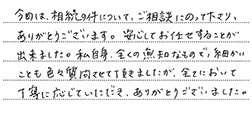 今回は、相続の件について、ご相談にのって下さり、
ありがとうございます。安心してお任せすることが
出来ました。私自身、全くの無知なもので、細かい
ことも色々質問させて頂きましたが、全てにおいて
丁寧に応じていただき、ありがとうございました。